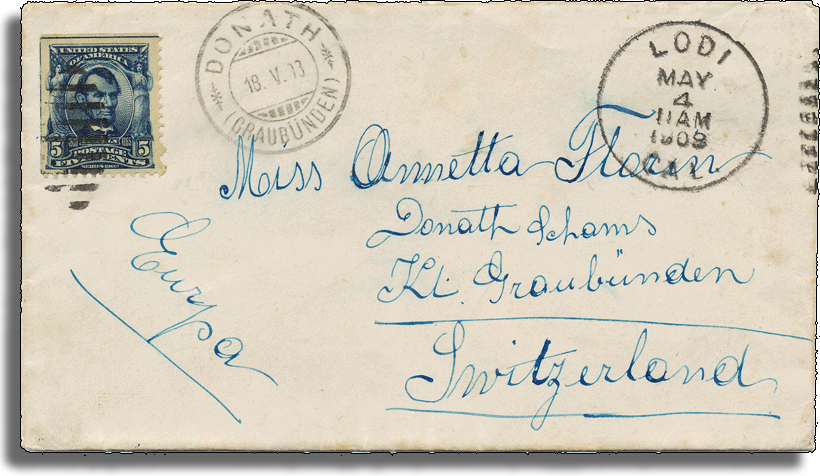 UNITED STATES
OF AMERICA
5 POSTAGE 5
FIVE CENTS
SERIES 1902
DONATH
18.V.03
(GRAUBÜNDEN)
LODI
MAY
4
11AM
1903
CAL
Miss Annetta Florin
Donath Schams
Kt. Graubünden
Switzerland
Eurpa